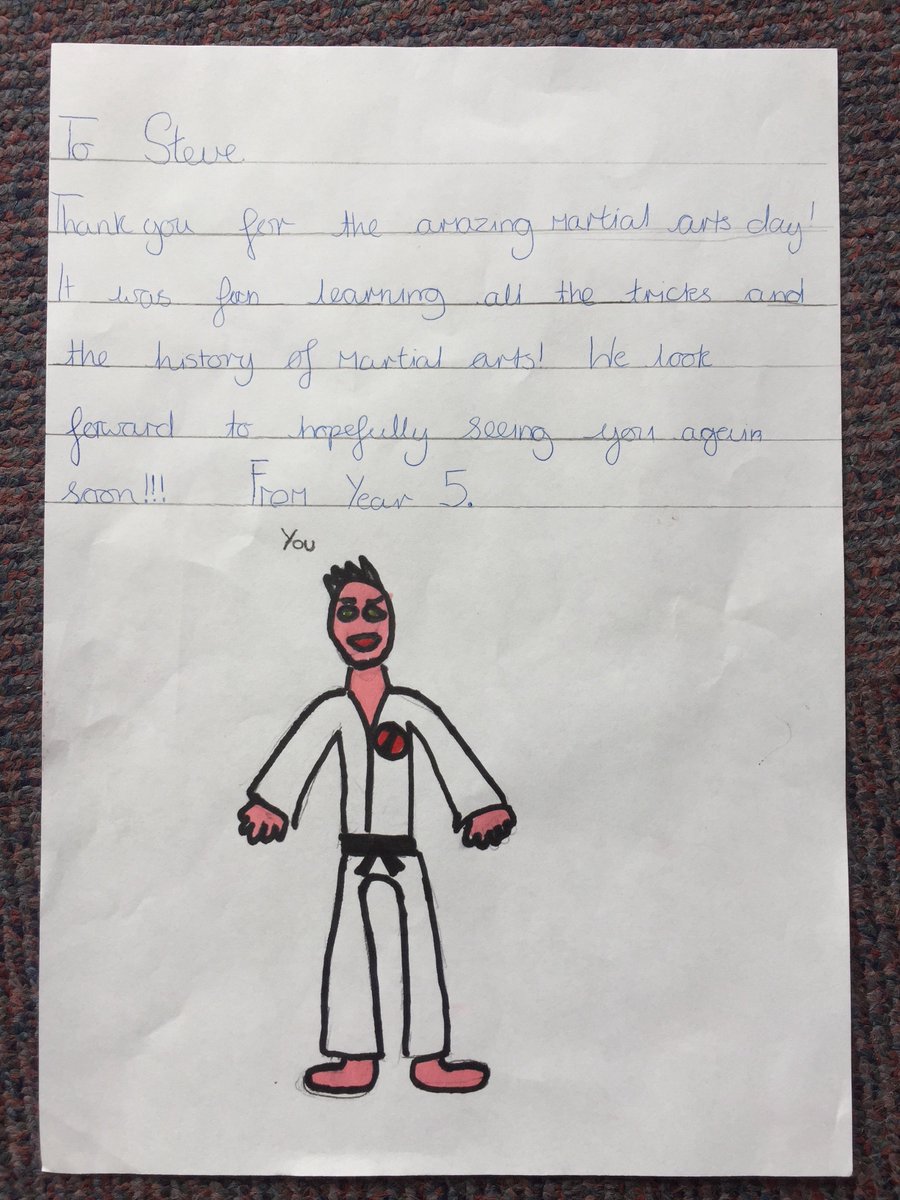 To Steve
Thank you for the amazing Martial arts day!
It was fun learning all the tricks and
the history of Martial arts! We look
forward to hopefully seeing you again
soon!!! From Year 5.
You